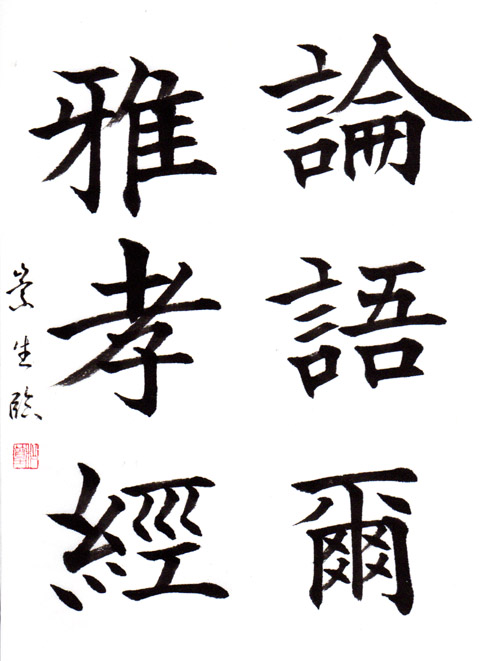 論語爾
雅孝經
崇生臨